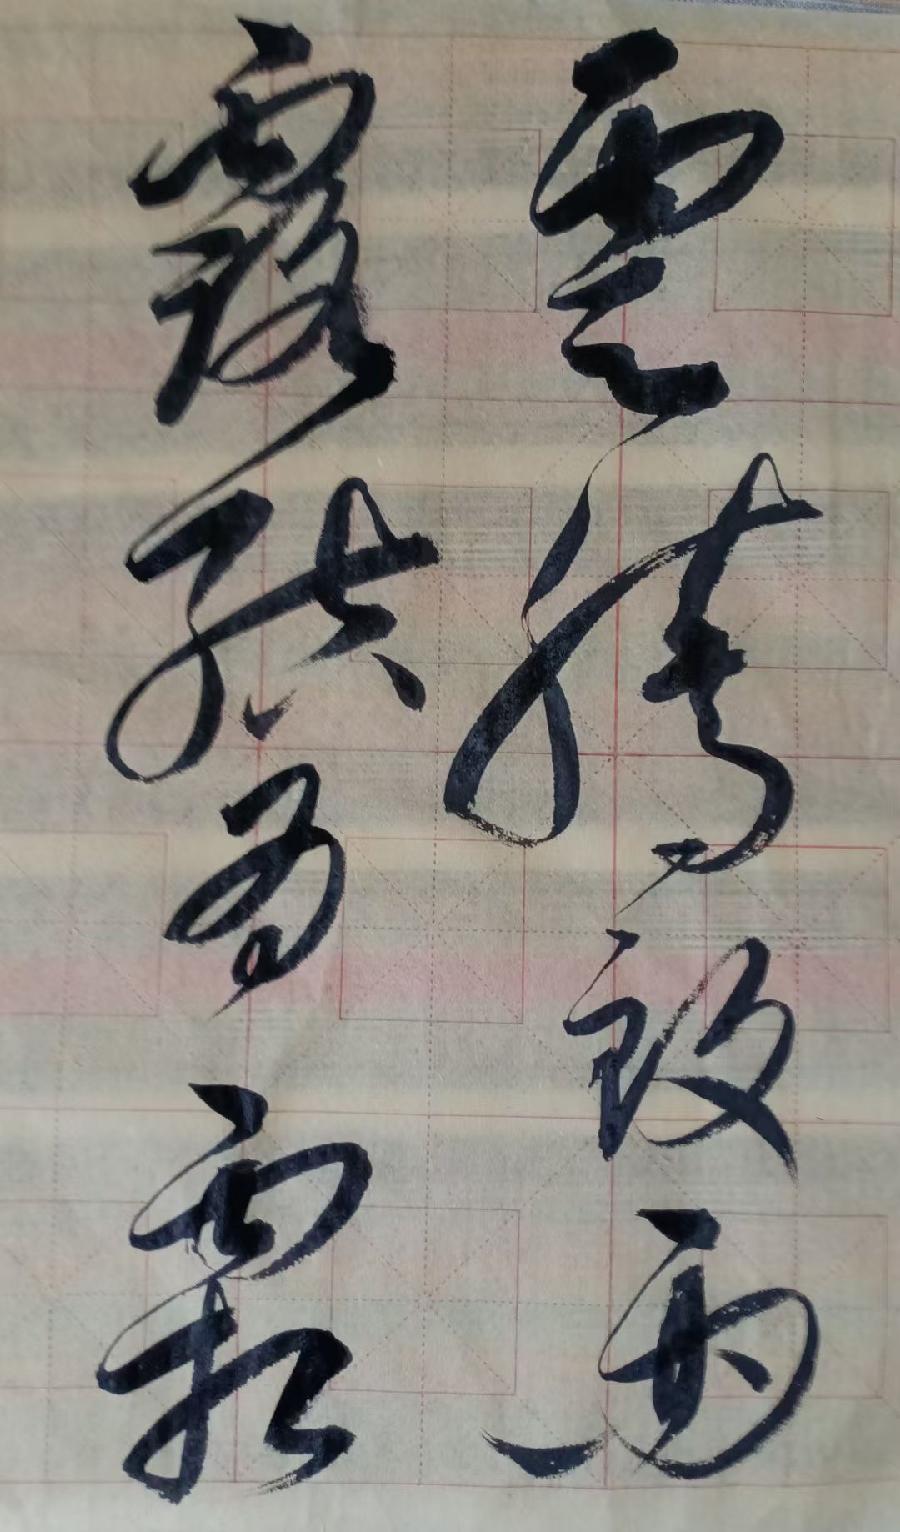 雲騰致雨
露結為霜